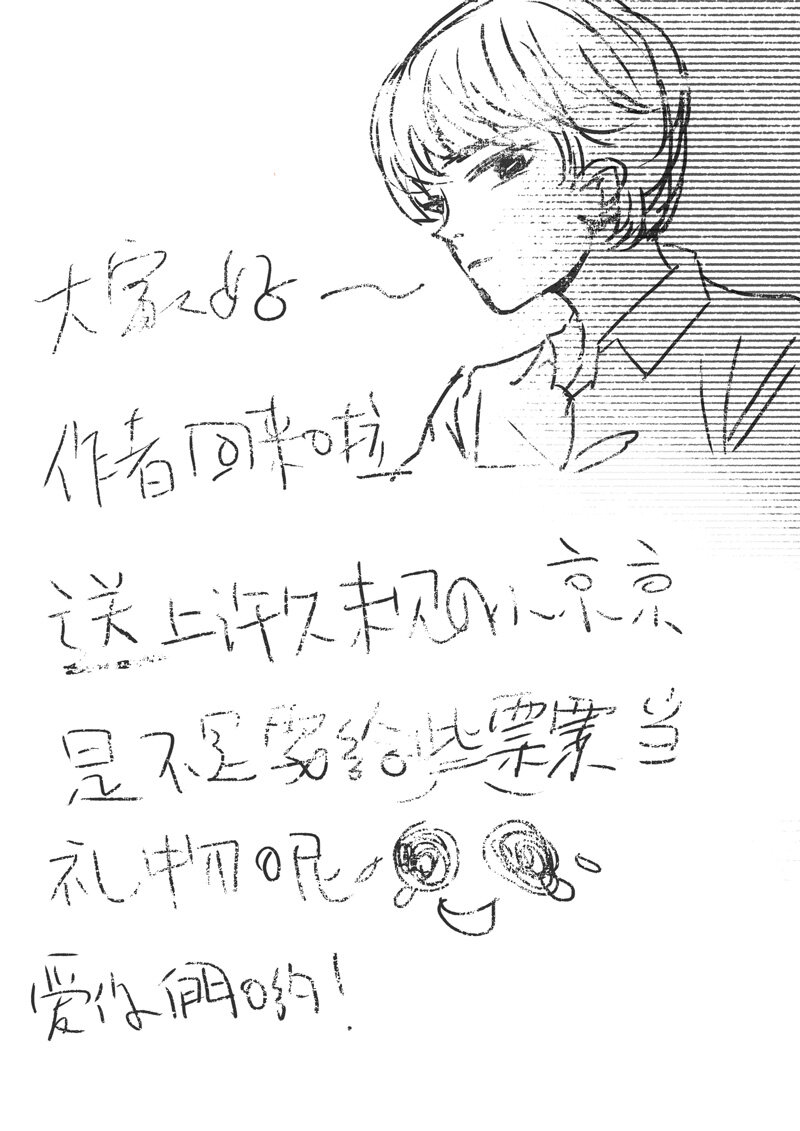 大家好～
作者回来啦
送上许久未见的小京京
是不是要给些票票当
礼物呢
爱你們哟!